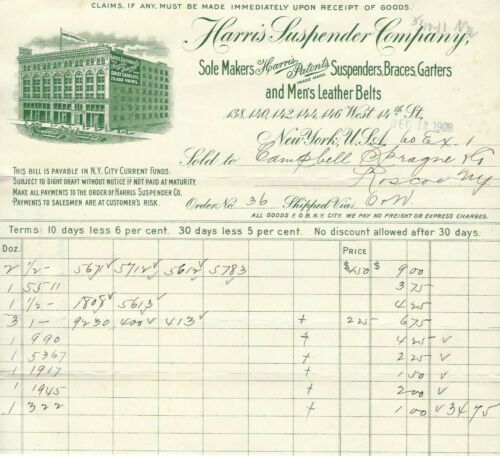 CLAIMS, IF ANY, MUST BE MADE IMMEDIATELY UPON RECEIPT OF GOODS.
Harris Suspender Company,
Sole Makers Harris Patents Suspenders, Braces, Garters
TRADE MARK
and Men's Leather Belts
138, 140, 142, 144, 146 West 14th St.
DEC 12 1908
New York, U.S.A.
Sold to Campbell & Sprague
Roscoe NY
THIS BILL IS PAYABLE IN N.Y. CITY CURRENT FUNDS.
SUBJECT TO SIGHT DRAFT WITHOUT NOTICE IF NOT PAID AT MATURITY.
MAKE ALL PAYMENTS TO THE ORDER OF HARRIS SUSPENDER CO.
PAYMENTS TO SALESMEN ARE AT CUSTOMER'S RISK.
Order No. 36 Shipped Via O & W.
ALL GOODS F.O.B. N.Y. CITY. WE PAY NO FREIGHT OR EXPRESS CHARGES.
Terms: 10 days less 6 per cent. 30 days less 5 per cent. No discount allowed after 30 days.
Doz. PRICE
2 1/2- 5671 5712 5612 5783 $4 50 $ 9 00
1 5511 3 75
1 1/2- 1808 5613 4 25
3 1- 9230 400 413 + 2 25 6 75
1 990 + 4 25 v
1 5367 + 2 25 v
1 1917 + 1 50 v
1 1945 2 00 v
1 322 + 1 00 v 34 75